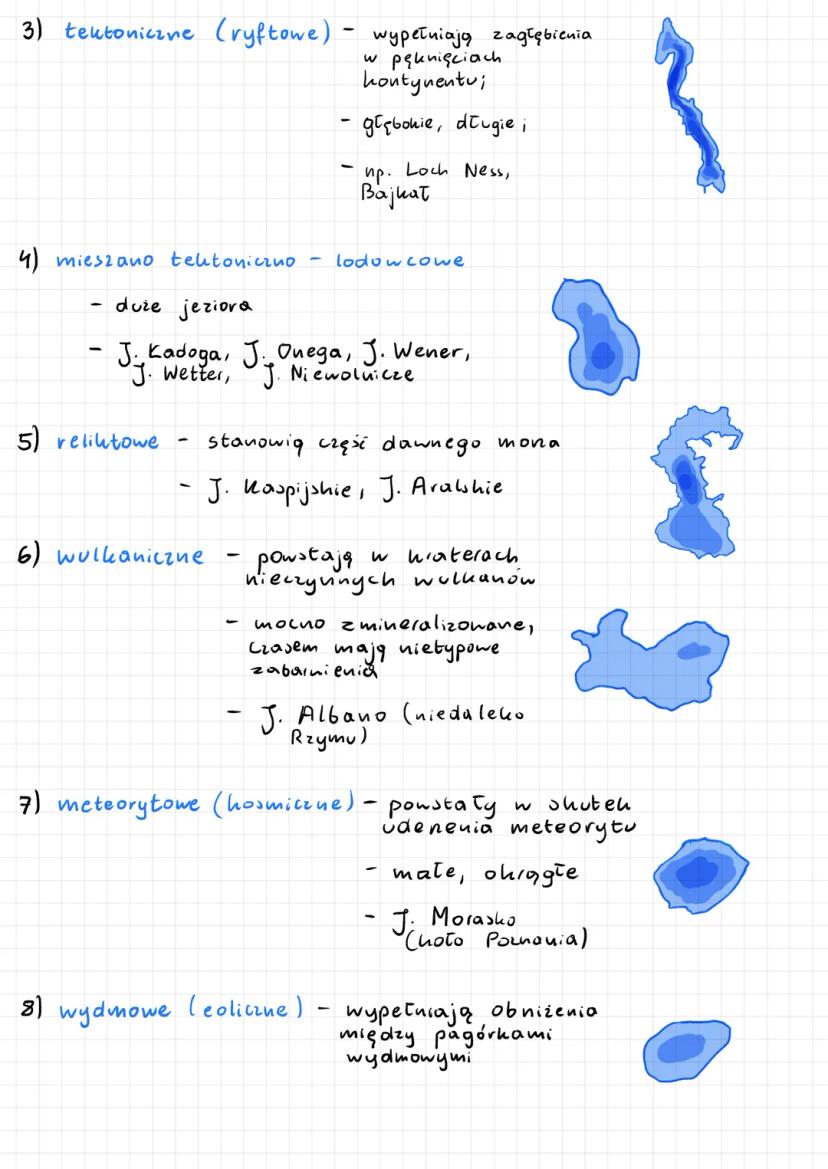 3) tektoniczne (ryftowe) - wypełniają zagłębienia
w pęknięciach
kontynentu;
- głębokie, długie;
- np. Loch Ness,
Bajkał
4) mieszano tektoniczno - lodowcowe
- duże jeziora
- J. Ładoga, J. Onega, J. Wener,
J. Wetter, J. Niewolnicze
5) reliktowe - stanowią część dawnego morza
- J. Kaspijskie, J. Aralskie
6) wulkaniczne - powstają w kraterach
nieczynnych wulkanów
- mocno zmineralizowane,
czasem mają nietypowe
zabarwienia
- J. Albano (niedaleko
Rzymu)
7) meteorytowe (kosmiczne) - powstały w skutek
uderzenia meteorytu
- małe, okrągłe
- J. Morasko
(koło Poznania)
8) wydmowe (eoliczne) - wypełniają obniżenia
między pagórkami
wydmowymi